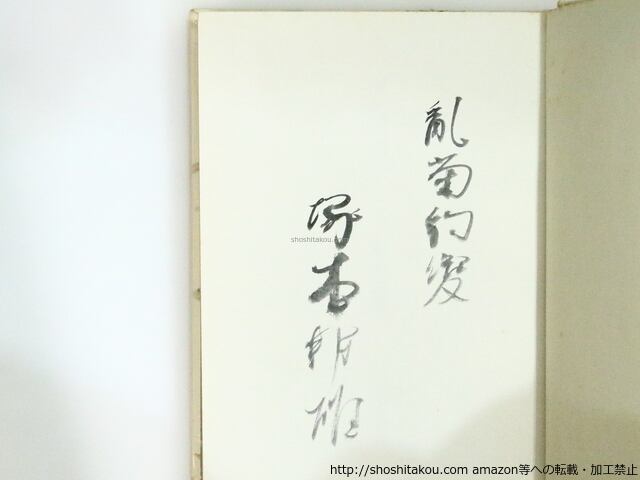 亂菊豹變
塚本邦雄
shoshitakou.com
http://shoshitakou.com amazon等への転載・加工禁止